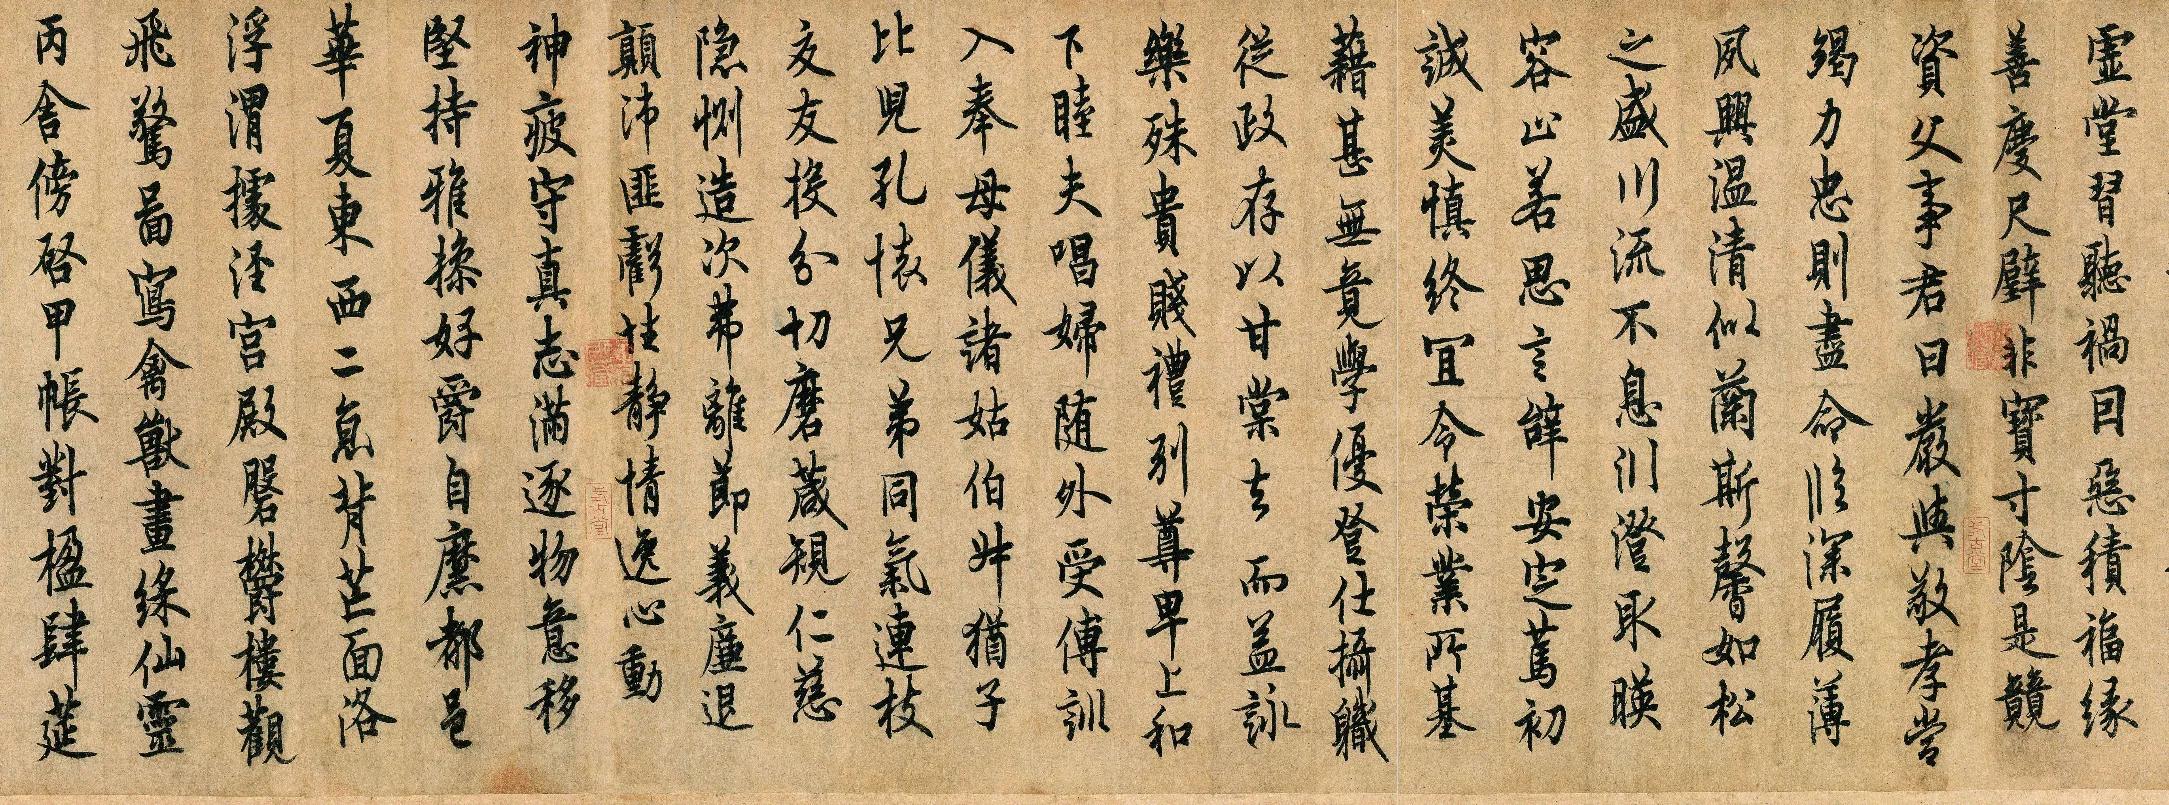 虚堂習聽禍因惡積福緣
善慶尺璧非寶寸陰是競
資父事君曰嚴與敬孝當
竭力忠則盡命臨深履薄
夙興溫清似蘭斯馨如松
之盛川流不息川澄取暎
容止若思言辭安定篤初
誠美慎終宜令榮業所基
藉甚無竟學優登仕攝職
從政存以甘棠去而益詠
樂殊貴賤禮別尊卑上和
下睦夫唱婦随外受傅訓
入奉母儀諸姑伯叔猶子
比兒孔懷兄弟同氣連枝
交友投分切磨葴規仁慈
隐惻造次弗離節義廉退
顛沛匪虧性静情逸心動
神疲守真志滿逐物意移
堅持雅操好爵自縻都邑
華夏東西二京背芒面洛
浮渭據涇宫殿磐欝樓觀
飛驚啚寫禽獸畫綵仙靈
丙舍傍啓甲帳對楹肆莚